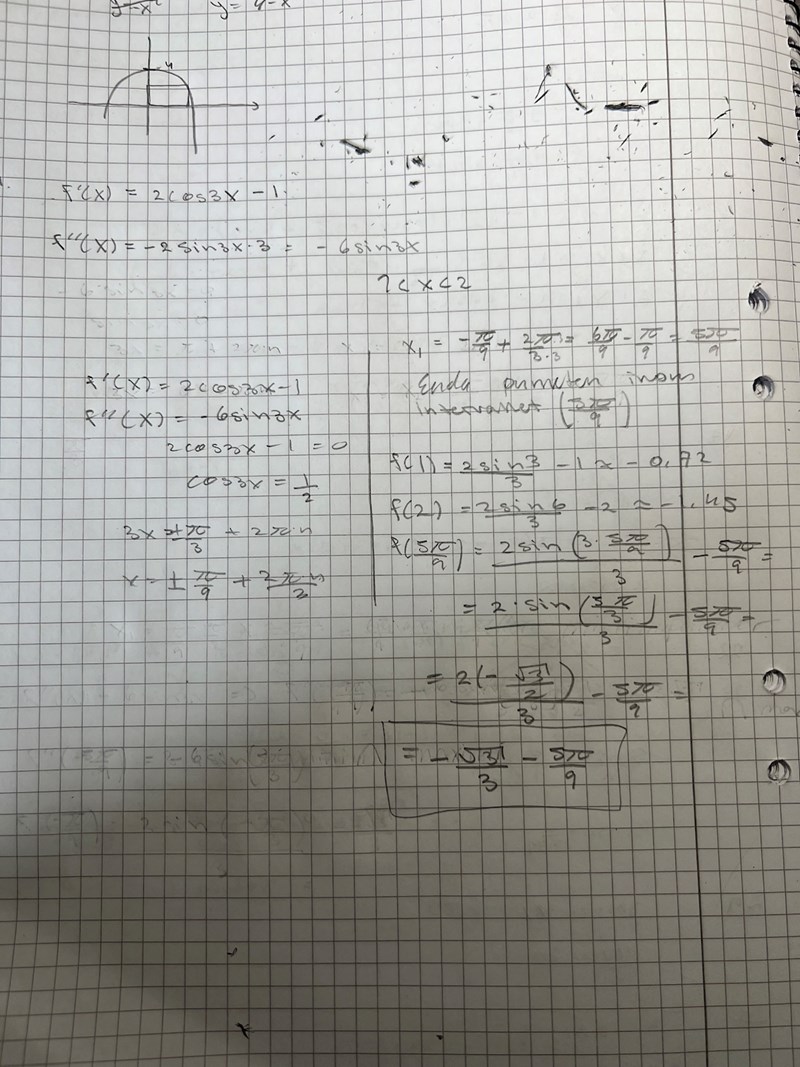 y = 4-x²
4
f'(x) = 2cos3x - 1
f''(x) = -2sin3x·3 = -6sin3x
1<x<2
f'(x) = 2cos3x-1
f''(x) = -6sin3x
2cos3x - 1 = 0
cos3x = 1/2
3x = ±π/3 + 2π·n
x = ±π/9 + 2π·n/3
x₁ = -π/9 + 2π/3·3 = 6π/9 - π/9 = 5π/9
Enda punkten inom
intervallet (5π/9)
f(1) = 2sin3/3 - 1 ≈ -0,92
f(2) = 2sin6/3 - 2 ≈ -1.45
f(5π/9) = 2sin(3·5π/9)/3 - 5π/9 =
= 2·sin(5π/3)/3 - 5π/9 =
= 2(-√3/2)/3 - 5π/9 =
= -√3/3 - 5π/9